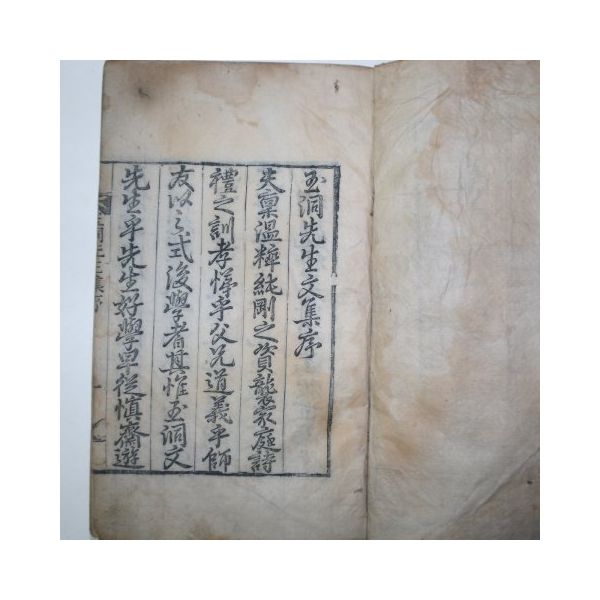 玉洞先生文集序
夫稟溫粹純剛之資襲家庭詩
禮之訓孝悌乎父兄道義乎師
友以之式後學者其惟玉洞文
先生乎先生好學早從愼齋遊